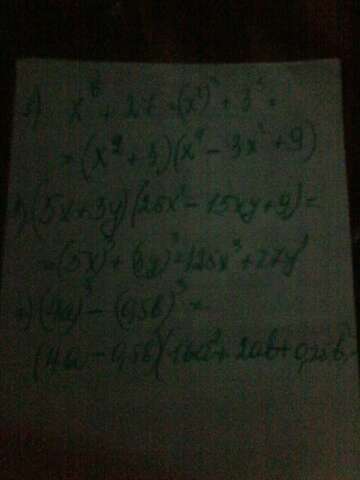 x⁶ + 27 = (x²)³ + 3³ =
= (x² + 3)(x⁴ - 3x² + 9)
(5x+3y)(25x² - 15xy + 9) =
= (5x)³ + (3y)³ = 125x³ + 27y³
(4a)³ - (0,5b)³ =
(4a - 0,5b)(16a² + 2ab + 0,25b